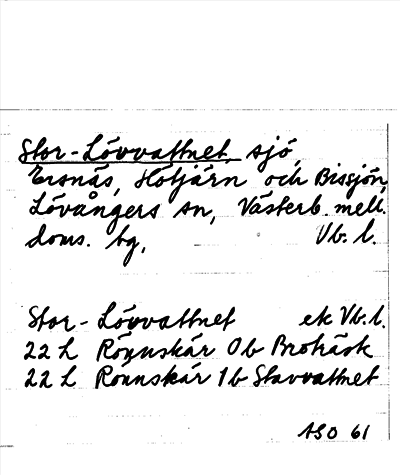 Stor-Lövvattnet, sjö,
Ersnäs, Hötjärn och Bissjön,
Lövångers sn, Västerb. mell.
doms. tg, Vb. l.
Stor-Lövvattnet ek Vb. l.
22 L Rönnskär 0b Brohäsk
22 L Rönnskär 1b Stavvattnet
ASO 61